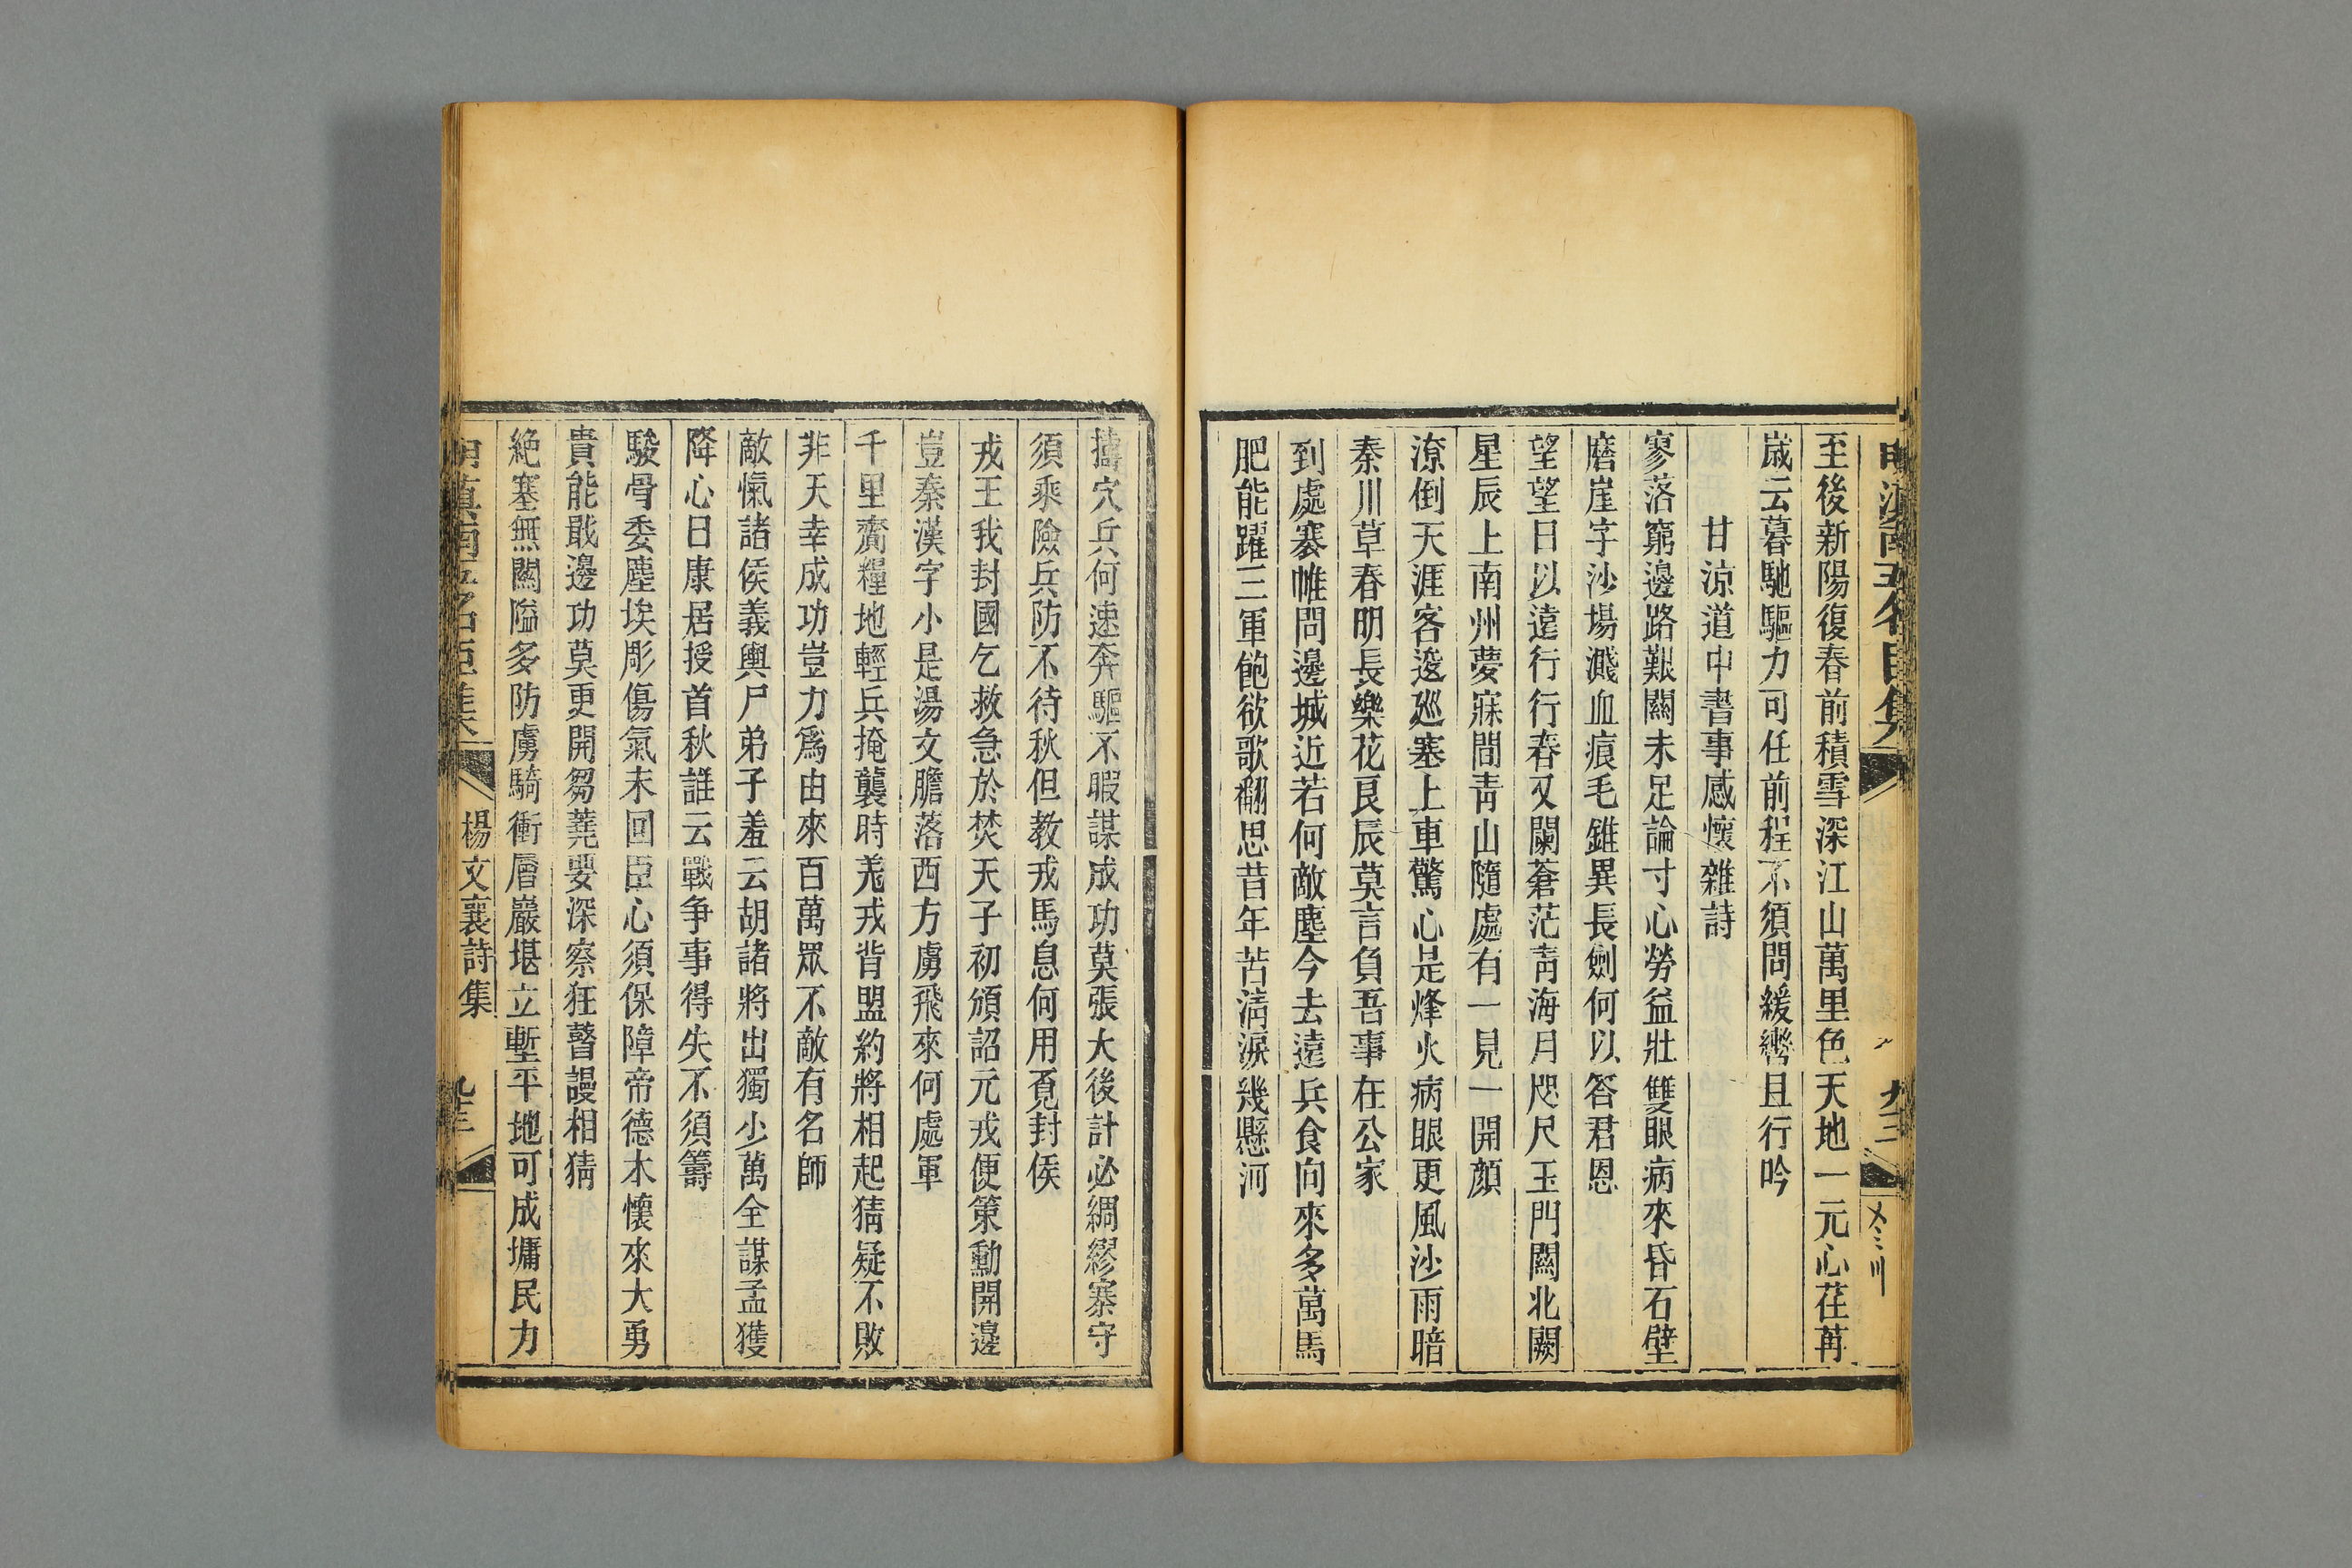 至後新陽復春前積雪深江山萬里色天地一元心荏苒
歳云暮馳驅力可任前程不須問緩轡且行吟
甘涼道中書事感懷雜詩
寥落窮邊路艱關未足論寸心勞益壯雙眼病來昏石壁
磨崖字沙場濺血痕毛錐異長劍何以答君恩
望望日以遠行行春又闌蒼茫靑海月咫尺玉門關北闕
星辰上南州夢寐間靑山隨處有一見一開顏
潦倒天涯客逡廵塞上車驚心是烽火病眼更風沙雨暗
秦川草春明長樂花良辰莫言負吾事在公家
到處褰帷問邊城近若何敵塵今去遠兵食向來多萬馬
肥能躍三軍飽欲歌翻思昔年苦淸淚幾懸河
擣穴兵何速奔驅不暇謀成功莫張大後計必綢繆寨守
須乘險兵防不待秋但教戎馬息何用覔封侯
戎王我封國乞救急於焚天子初頒詔元戎便策勳開邊
豈秦漢字小是湯文膽落西方虜飛來何處軍
千里齎糧地輕兵掩襲時羌戎背盟約將相起猜疑不敗
非天幸成功豈力爲由來百萬眾不敵有名師
敵愾諸侯義輿尸弟子羞云胡諸將出獨少萬全謀孟獲
降心日康居授首秋誰云戰争事得失不須籌
駿骨委塵埃彫傷氣未回臣心須保障帝德木懷來大勇
貴能戢邊功莫更開芻蕘要深察狂瞽謾相猜
絶塞無關隘多防虜騎衝層巖堪立塹平地可成墉民力
楊文襄詩集